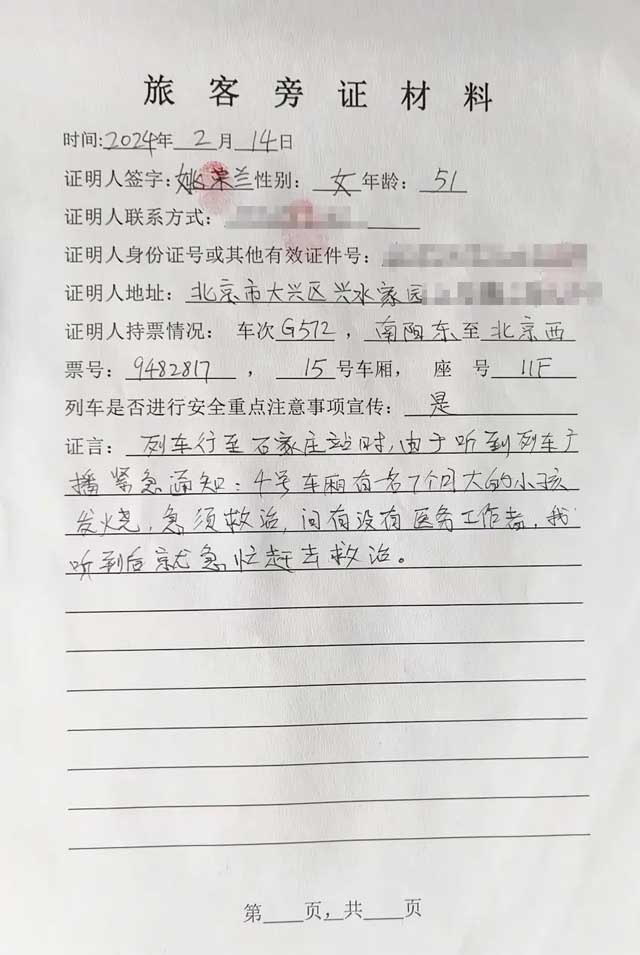 旅客旁证材料
时间:2024年2月14日
证明人签字:姚荣兰性别:女年龄:51
证明人联系方式:
证明人身份证号或其他有效证件号:
证明人地址:北京市大兴区兴水家园
证明人持票情况:车次G572,南阳东至北京西
票号:9482817,15号车厢,座号11F
列车是否进行安全重点注意事项宣传:是
证言:列车行至石家庄站时,由于听到列车广
播紧急通知:4号车厢有一名7个月大的小孩
发烧,急须救治,问有没有医务工作者,我
听到后就急忙赶去救治。
第 页,共 页